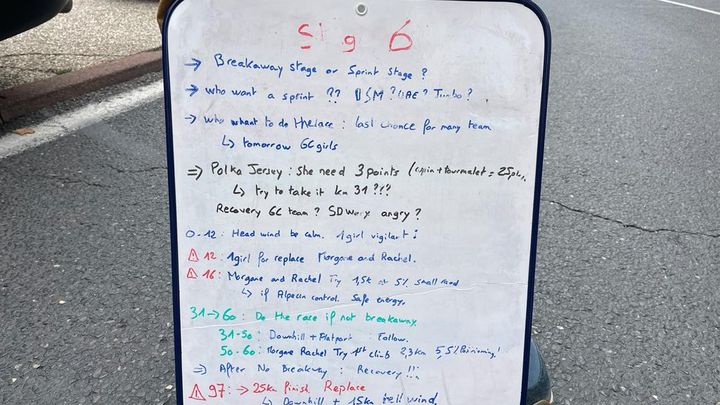 Stg 6
→ Breakaway stage or Sprint stage ?
→ who want a sprint ?? DSM ? UAE ? Jumbo ?
→ who want to do the race : last chance for many team
↳ tomorrow GC girls
⇒ Polka Jersey : She need 3 points (aspin + tourmalet = 25pts)
↳ try to take it km 31 ???
Recovery GC team ? SDWorx angry ?
0-12 : Head wind be calm. 1 girl vigilant !
⚠ 12 : 1 girl for replace Morgane and Rachel.
⚠ 16 : Morgane and Rachel Try 1,5k at 5% small road
↳ if Alpecin control. Safe energy.
31→60 : Do the race if not breakaway.
31-50 : Downhill + Flat part : Follow.
50-60 : Morgane Rachel Try 1st climb 2,3km 5,5% Positioning !
⇒ After No Breakaway : Recovery !!!
⚠ 97 : → 25km finish Replace
↳ Downhill + 15km wind.